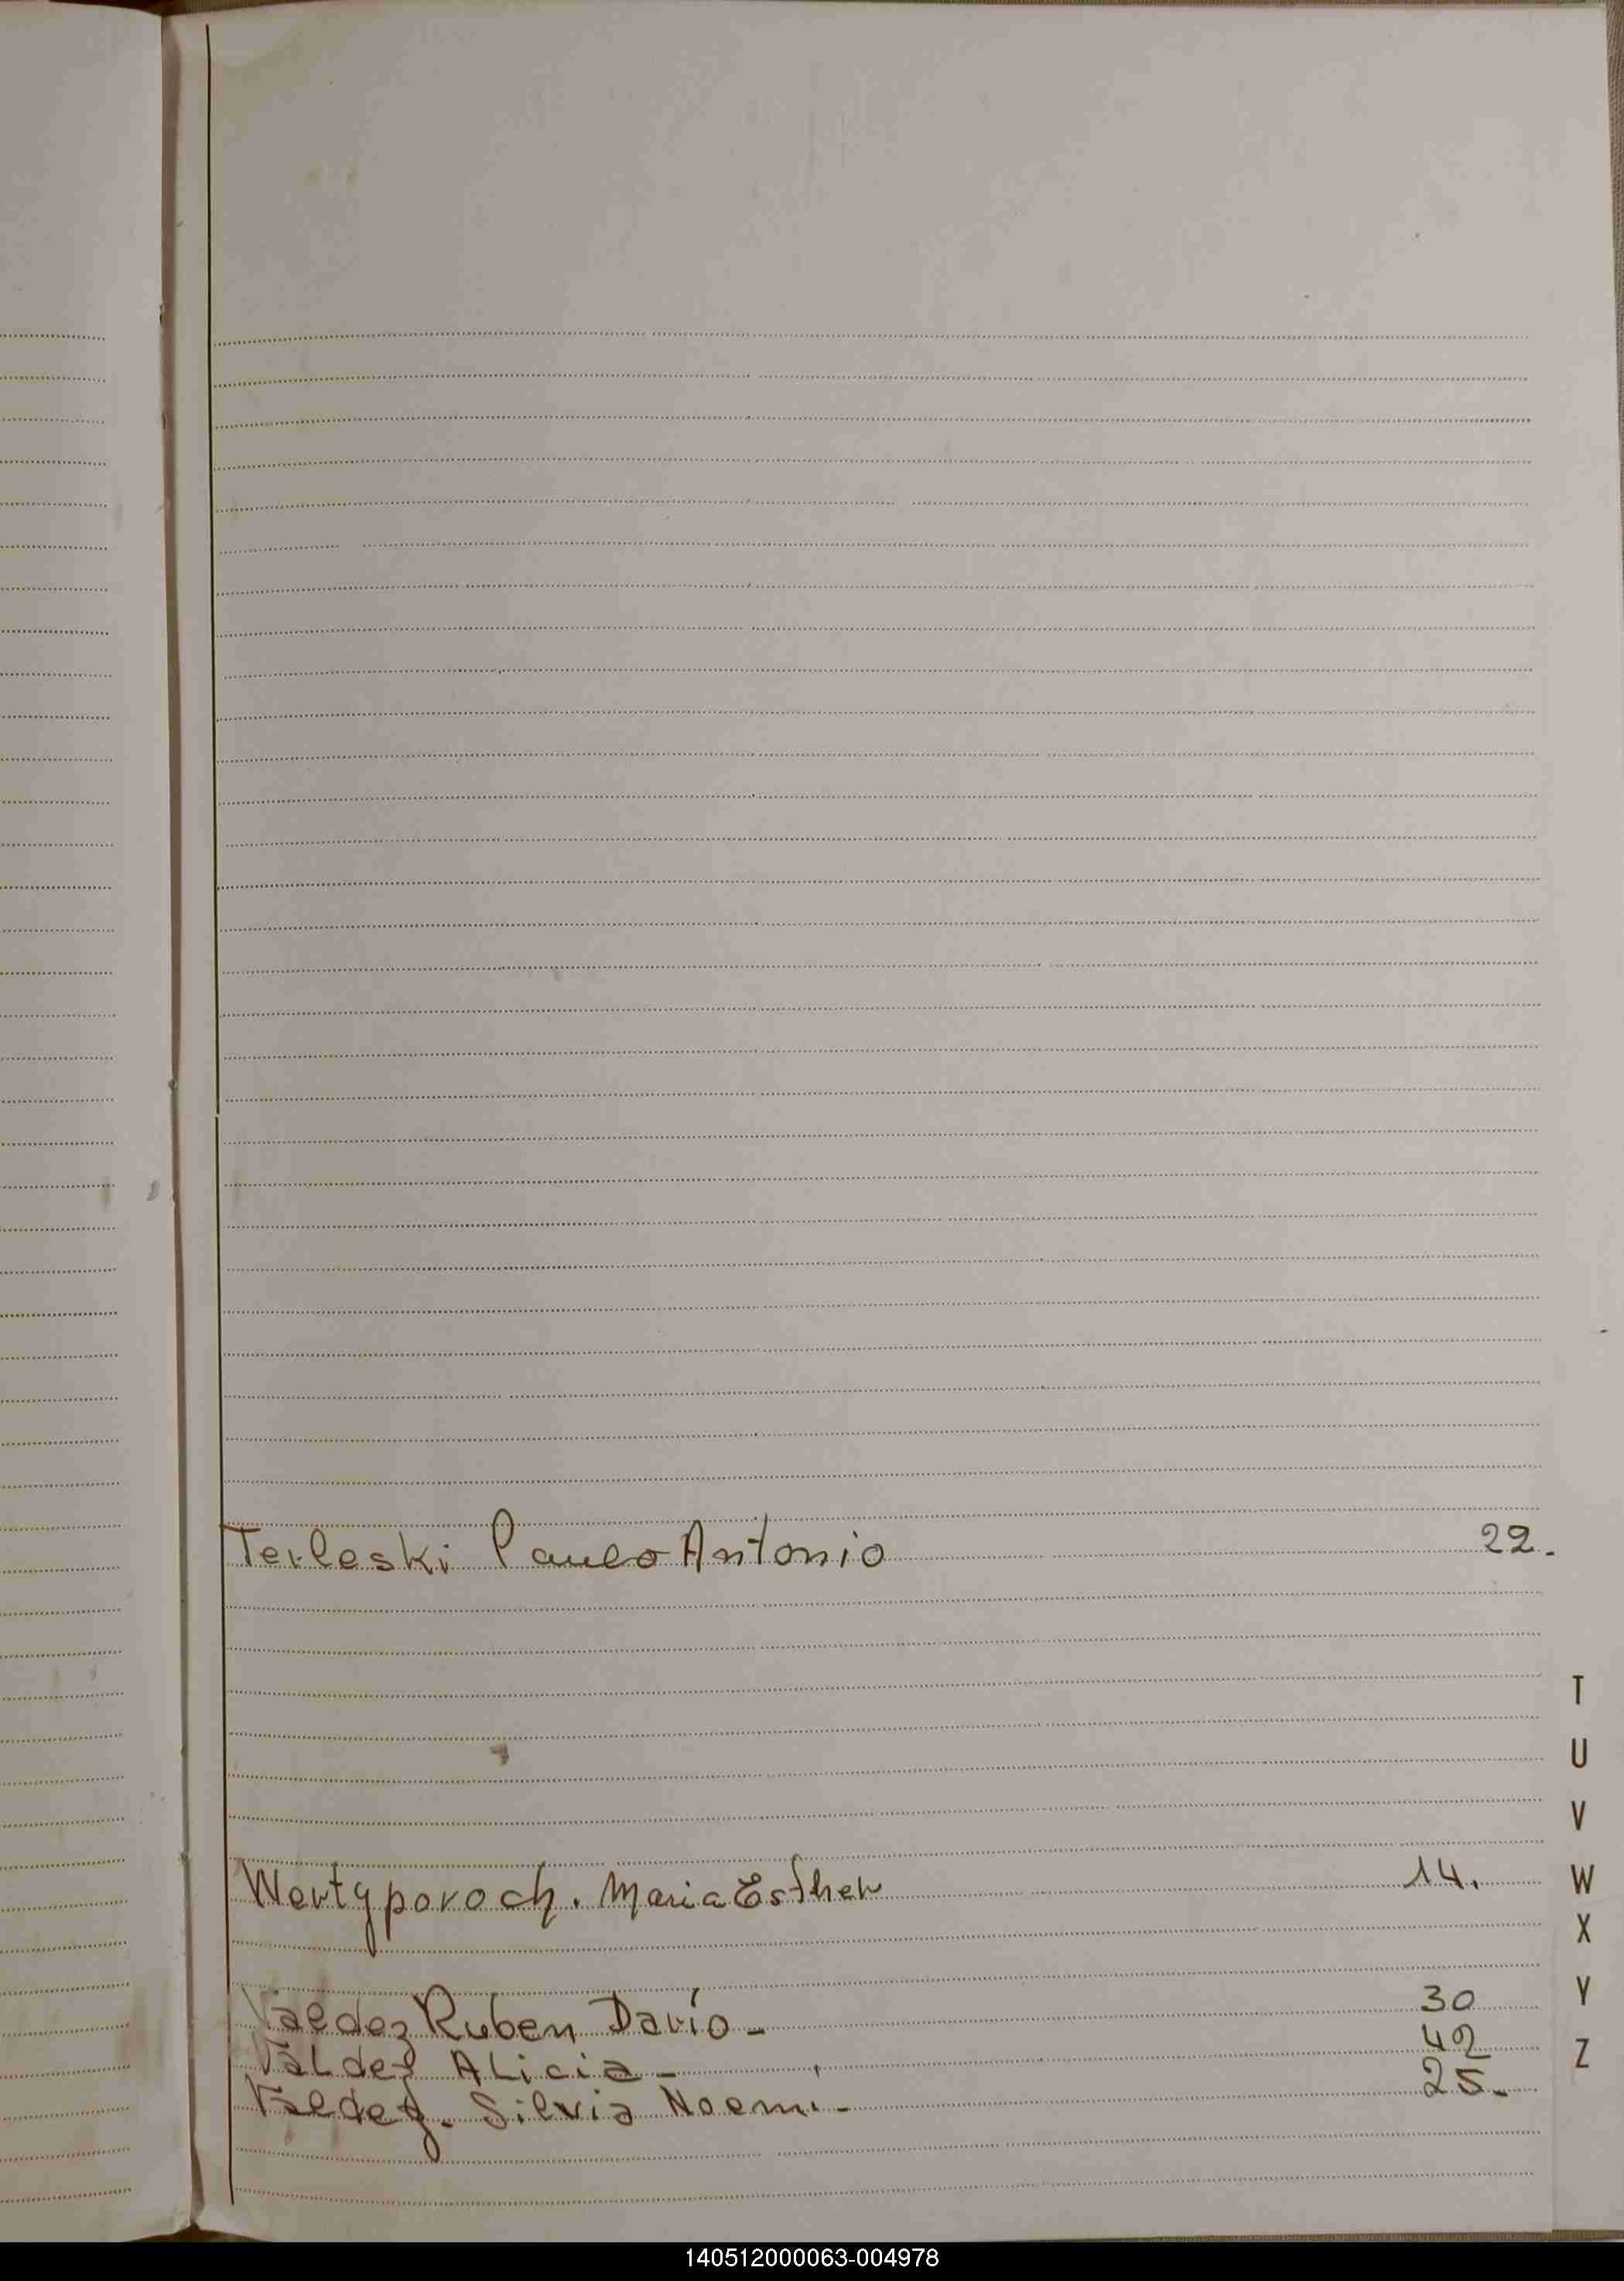 Terleski Paulo Antonio 22.
T
U
V
Wertyporoch. Maria Esther 14.
W
X
Valdez Ruben Darío - 30
Y
Valdez Alicia - 42
Z
Valdez. Silvia Noemi - 25.
140512000063-004978